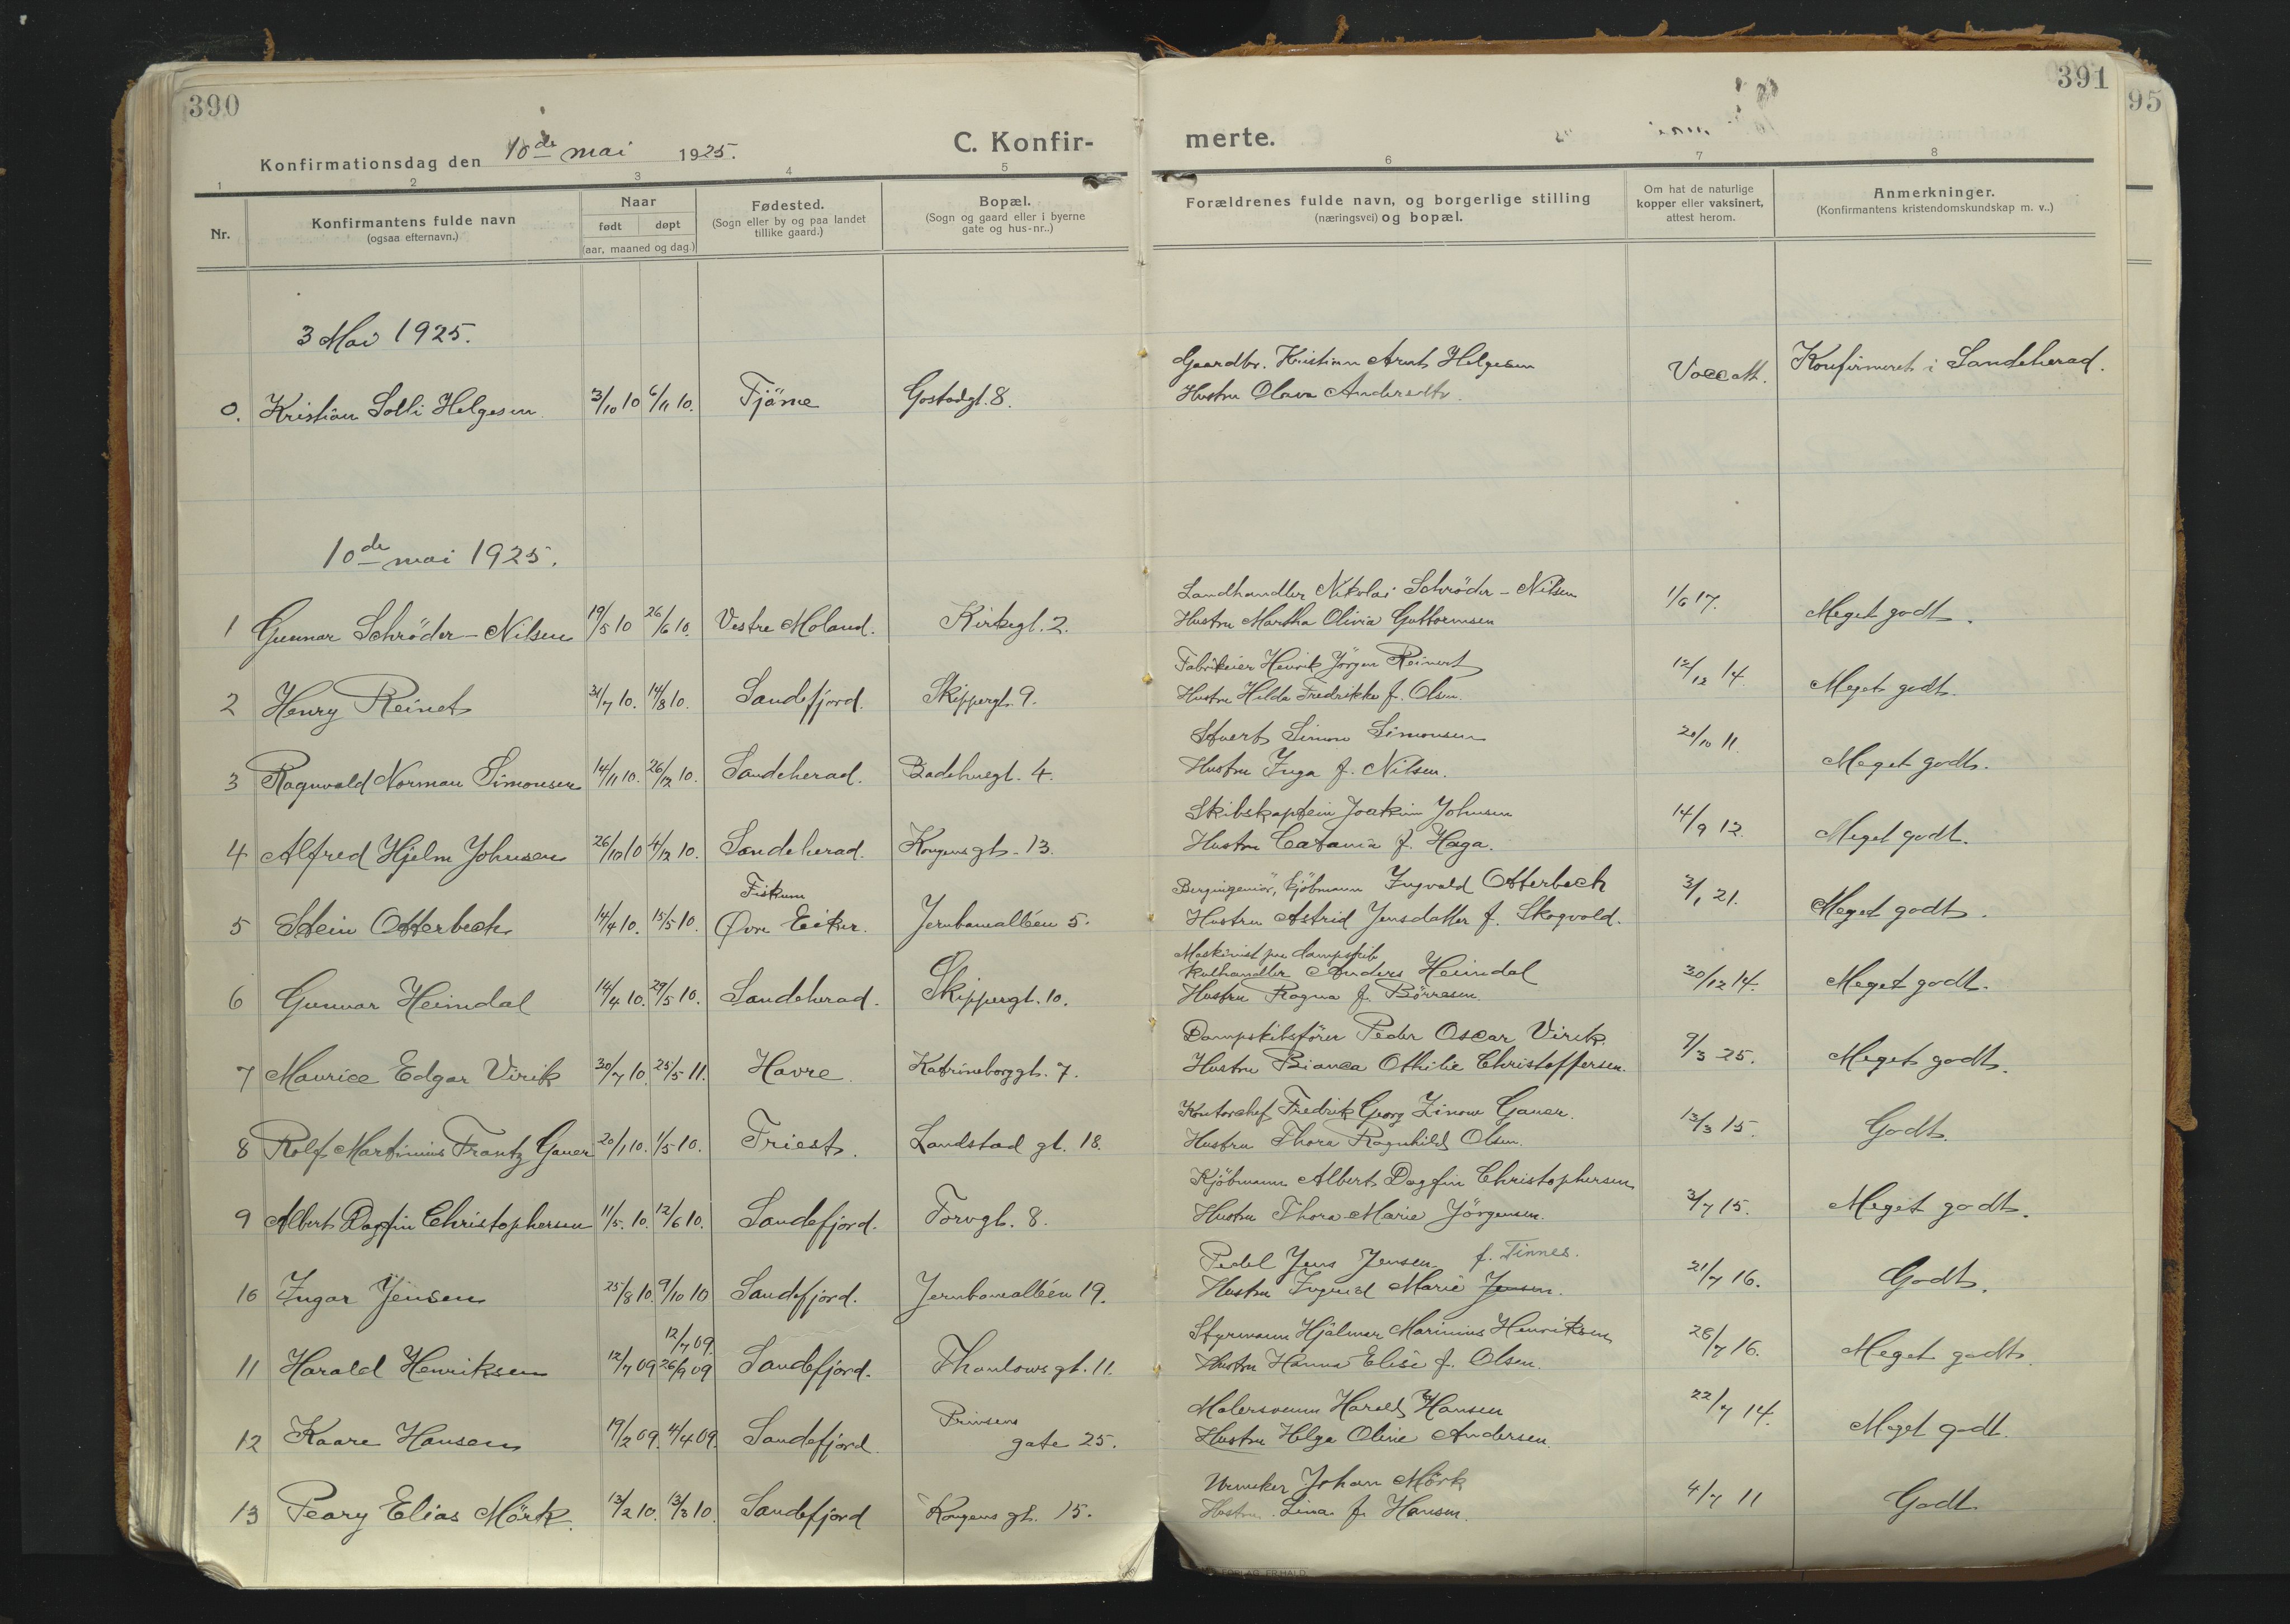 390
391
95
Konfirmationsdag den 10de mai 1925.
C. Konfir-
merte.
1 2 3 4 5 6 7 8
Nr.
Konfirmantens fulde navn
(ogsaa efternavn.)
Naar
født døpt
(aar, maaned og dag.)
Fødested.
(Sogn eller by og paa landet
tillike gaard.)
Bopæl.
(Sogn og gaard eller i byerne
gate og hus-nr..)
Forældrenes fulde navn, og borgerlige stilling
(næringsvei) og bopæl.
Om hat de naturlige
kopper eller vaksinert,
attest herom.
Anmerkninger.
(Konfirmantens kristendomskundskap m. v..)
3 Mai 1925.
Gaardbr. Kristian Arnt Helgesen
0. Kristian Solli Helgesen 3/10 10 6/11 10. Tjöme Gostadgt. 8. Hustru Olava Andersdtr. Vacc att. Konfirmeret i Sandeherad.
10de mai 1925.
Landhandler Nikolai Schröder-Nilsen
1 Gunnar Schröder-Nilsen 19/5 10 26/6 10. Vestre Moland. Kirkegt. 2. Hustru Martha Olivia Guttormsen 1/6 17. Meget godt.
Fabrikeier Henrik Jörgen Reinert
2 Henry Reinet 31/7 10. 14/8 10. Sandefjord. Skippergt. 9. Hustru Hilda Fredrikke f. Olsen. 12/12 14. Meget godt.
Stuert Simon Simonsen
3 Ragnvald Norman Simonsen 14/11 10. 26/12 10. Sandeherad. Badehusgt. 4. Hustru Inga f. Nilsen. 20/10 11. Meget godt.
Skibskaptein Joakim Johnsen
4 Alfred Hjelm Johnsen 26/10 10 4/12 10. Sandeherad. Kongensgt. 13. Hustru Catania f. Haga. 14/9 12. Meget godt.
Fiskum
Bergingeniör, kjöbmann Ingvald Otterbech
5 Stein Otterbech 14/4 10. 15/5 10. Øvre Eiker. Jernbanealléen 5. Hustru Astrid Jensdatter f. Skogvold. 3/1 21. Meget godt.
Maskinist paa dampskib
Kulhandler Anders Heimdal
6 Gunnar Heimdal 14/4 10. 29/5 10. Sandeherad. Skippergt. 10. Hustru Ragna f. Börresen. 30/12 14. Meget godt.
Dampskibsförer Peder Oscar Virik.
7 Maurice Edgar Virik 30/7 10. 25/5 11. Havre. Katrineborggt. 7. Hustru Bianca Othilie Christoffersen. 9/3 25. Meget godt.
Kontorchef Fredrik Georg Zinow Gauer.
8 Rolf Martinius Frantz Gauer 20/1 10. 1/5 10. Triest. Landstad gt. 18. Hustru Thora Ragnhild Olsen. 13/3 15. Godt.
Kjöbmann Albert Dagfin Christophersen
9 Albert Dagfin Christophersen 11/5. 10. 12/6 10. Sandefjord. Torvgt. 8. Hustru Thora Marie Jörgensen. 3/7 15. Meget godt.
Pedel Jens Jensen f. Tinnes.
10 Ingar Jensen 25/8 10. 9/10 10 Sandefjord. Jernbanealléen 19. Hustru Ingerid Marie Jensen. 21/7 16. Godt.
12/7 09.
Styrmann Hjalmar Marinius Henriksen
11 Harald Henriksen 12/7 09 26/9 09 Sandefjord. Thaulowsgt. 11. Hustru Hanna Elise f. Olsen. 28/7 16. Meget godt.
Malersvenn Harald Hansen
12 Kaare Hansen 19/2 09. 4/4 09. Sandefjord. Prinsens gate 25. Hustru Helga Oline Andersen. 22/7 14. Meget godt.
Johan Mörk
13 Peary Elias Mörk. 13/2 10. 13/3 10. Sandefjord Kongens gt. 15. Hustru Lina f. Hansen. 4/7 11 Godt.